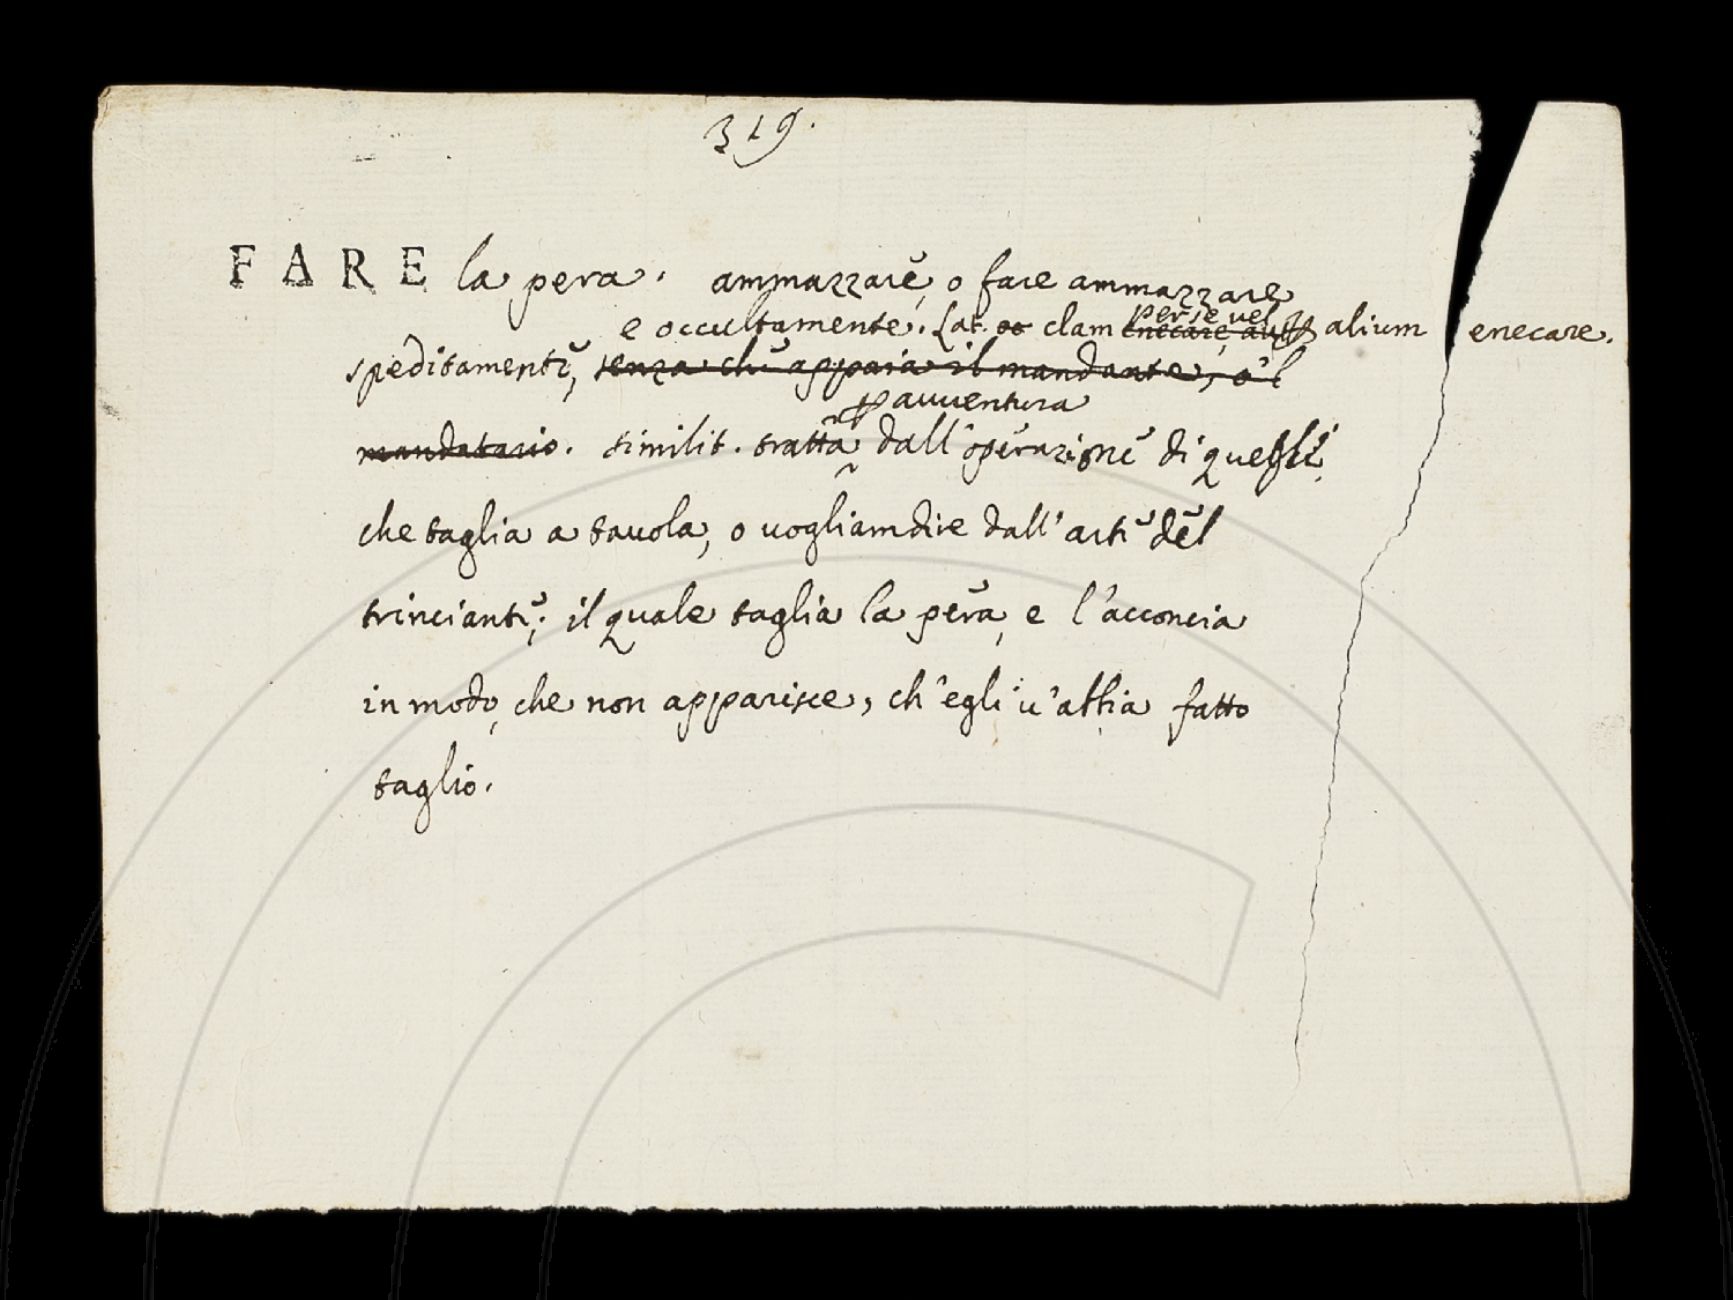 319.
FARE la pera. ammazzare, o fare ammazzare
per se vel
e occultamente. Lat. clam enecare, alium enecare.
speditamente, senza che appaia il mandante, o'l
avventura
mandatario. similit. tratta dall'operazione di quegli,
che taglia a tavola, o vogliam dire dall'arte del
trinciante; il quale taglia la pera, e l'acconcia
in modo, che non apparisce, ch'egli v'abbia fatto
taglio.